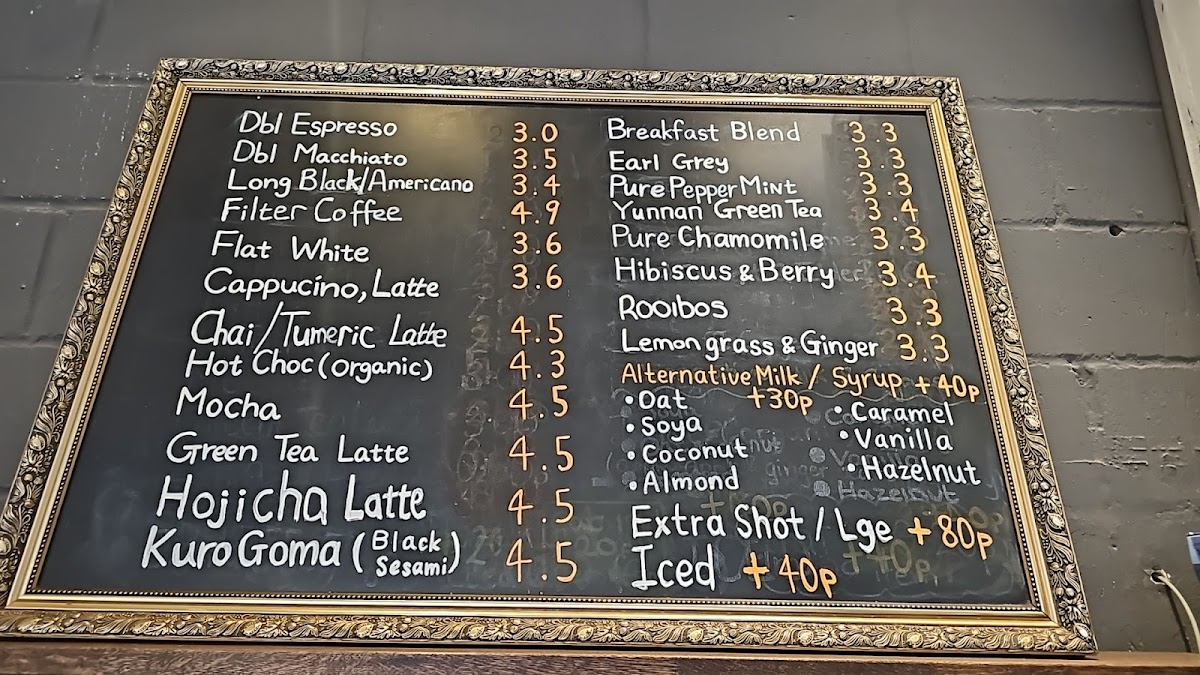 Dbl Espresso 3.0
Dbl Macchiato 3.5
Long Black/Americano 3.4
Filter Coffee 4.9
Flat White 3.6
Cappucino, Latte 3.6
Chai/Tumeric Latte 4.5
Hot Choc (organic) 4.3
Mocha 4.5
Green Tea Latte 4.5
Hojicha Latte 4.5
Kuro Goma (Black Sesami) 4.5
Breakfast Blend 3.3
Earl Grey 3.3
Pure PepperMint 3.3
Yunnan Green Tea 3.4
Pure Chamomile 3.3
Hibiscus & Berry 3.4
Rooibos 3.3
Lemon grass & Ginger 3.3
Alternative Milk / Syrup + 40p
+30p
• Oat
• Soya
• Coconut
• Almond
• Caramel
• Vanilla
• Hazelnut
Extra Shot / Lge + 80p
Iced + 40p